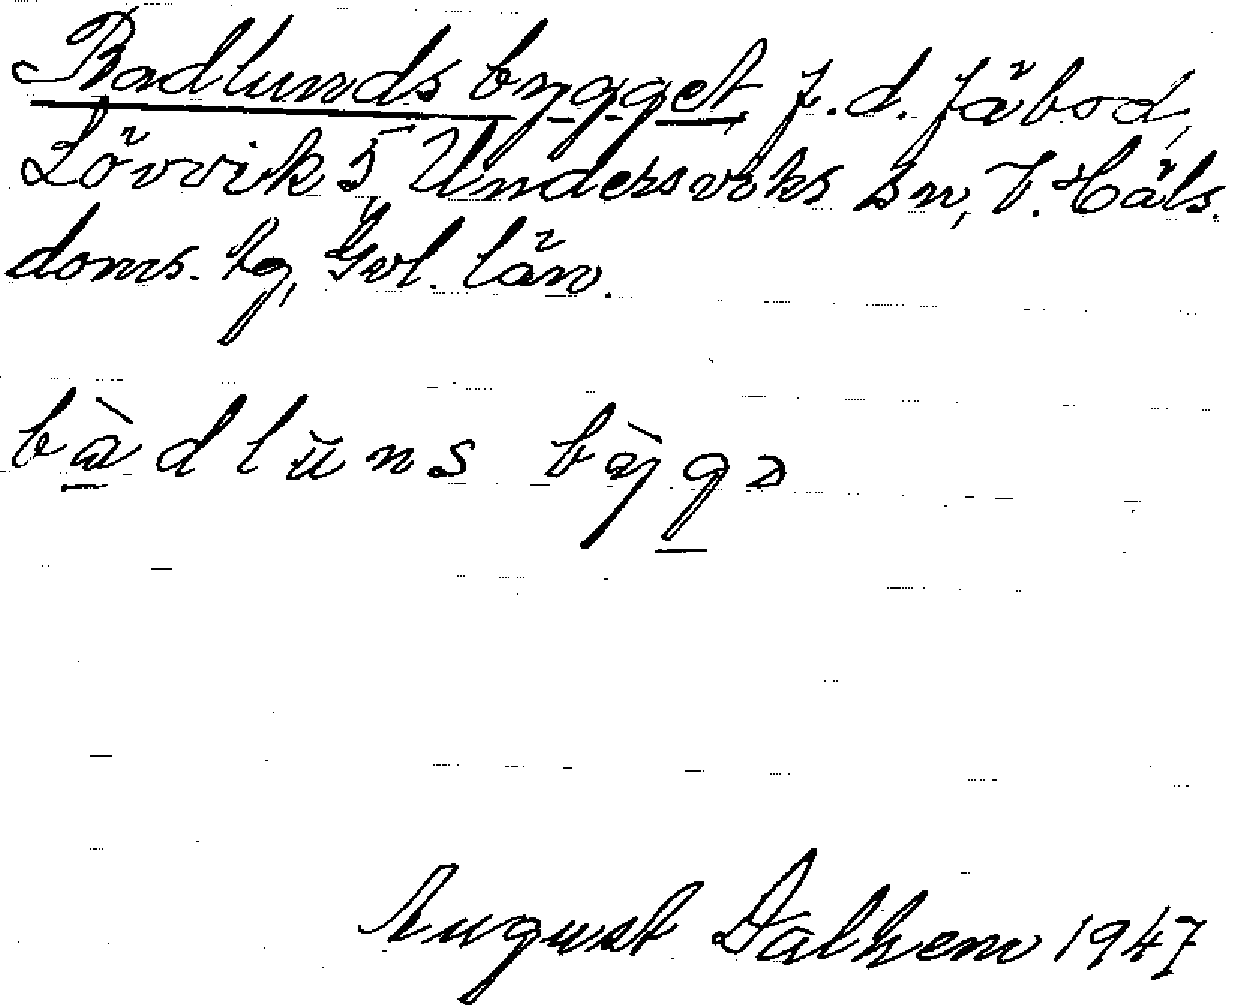 Badlunds bygget, f. d. fäbod,
Lövvik 5, Undersviks sn, V. Häls.
doms. tg, Gvl. län.
bàdlŭns bỳgə
August Dalhem 1947